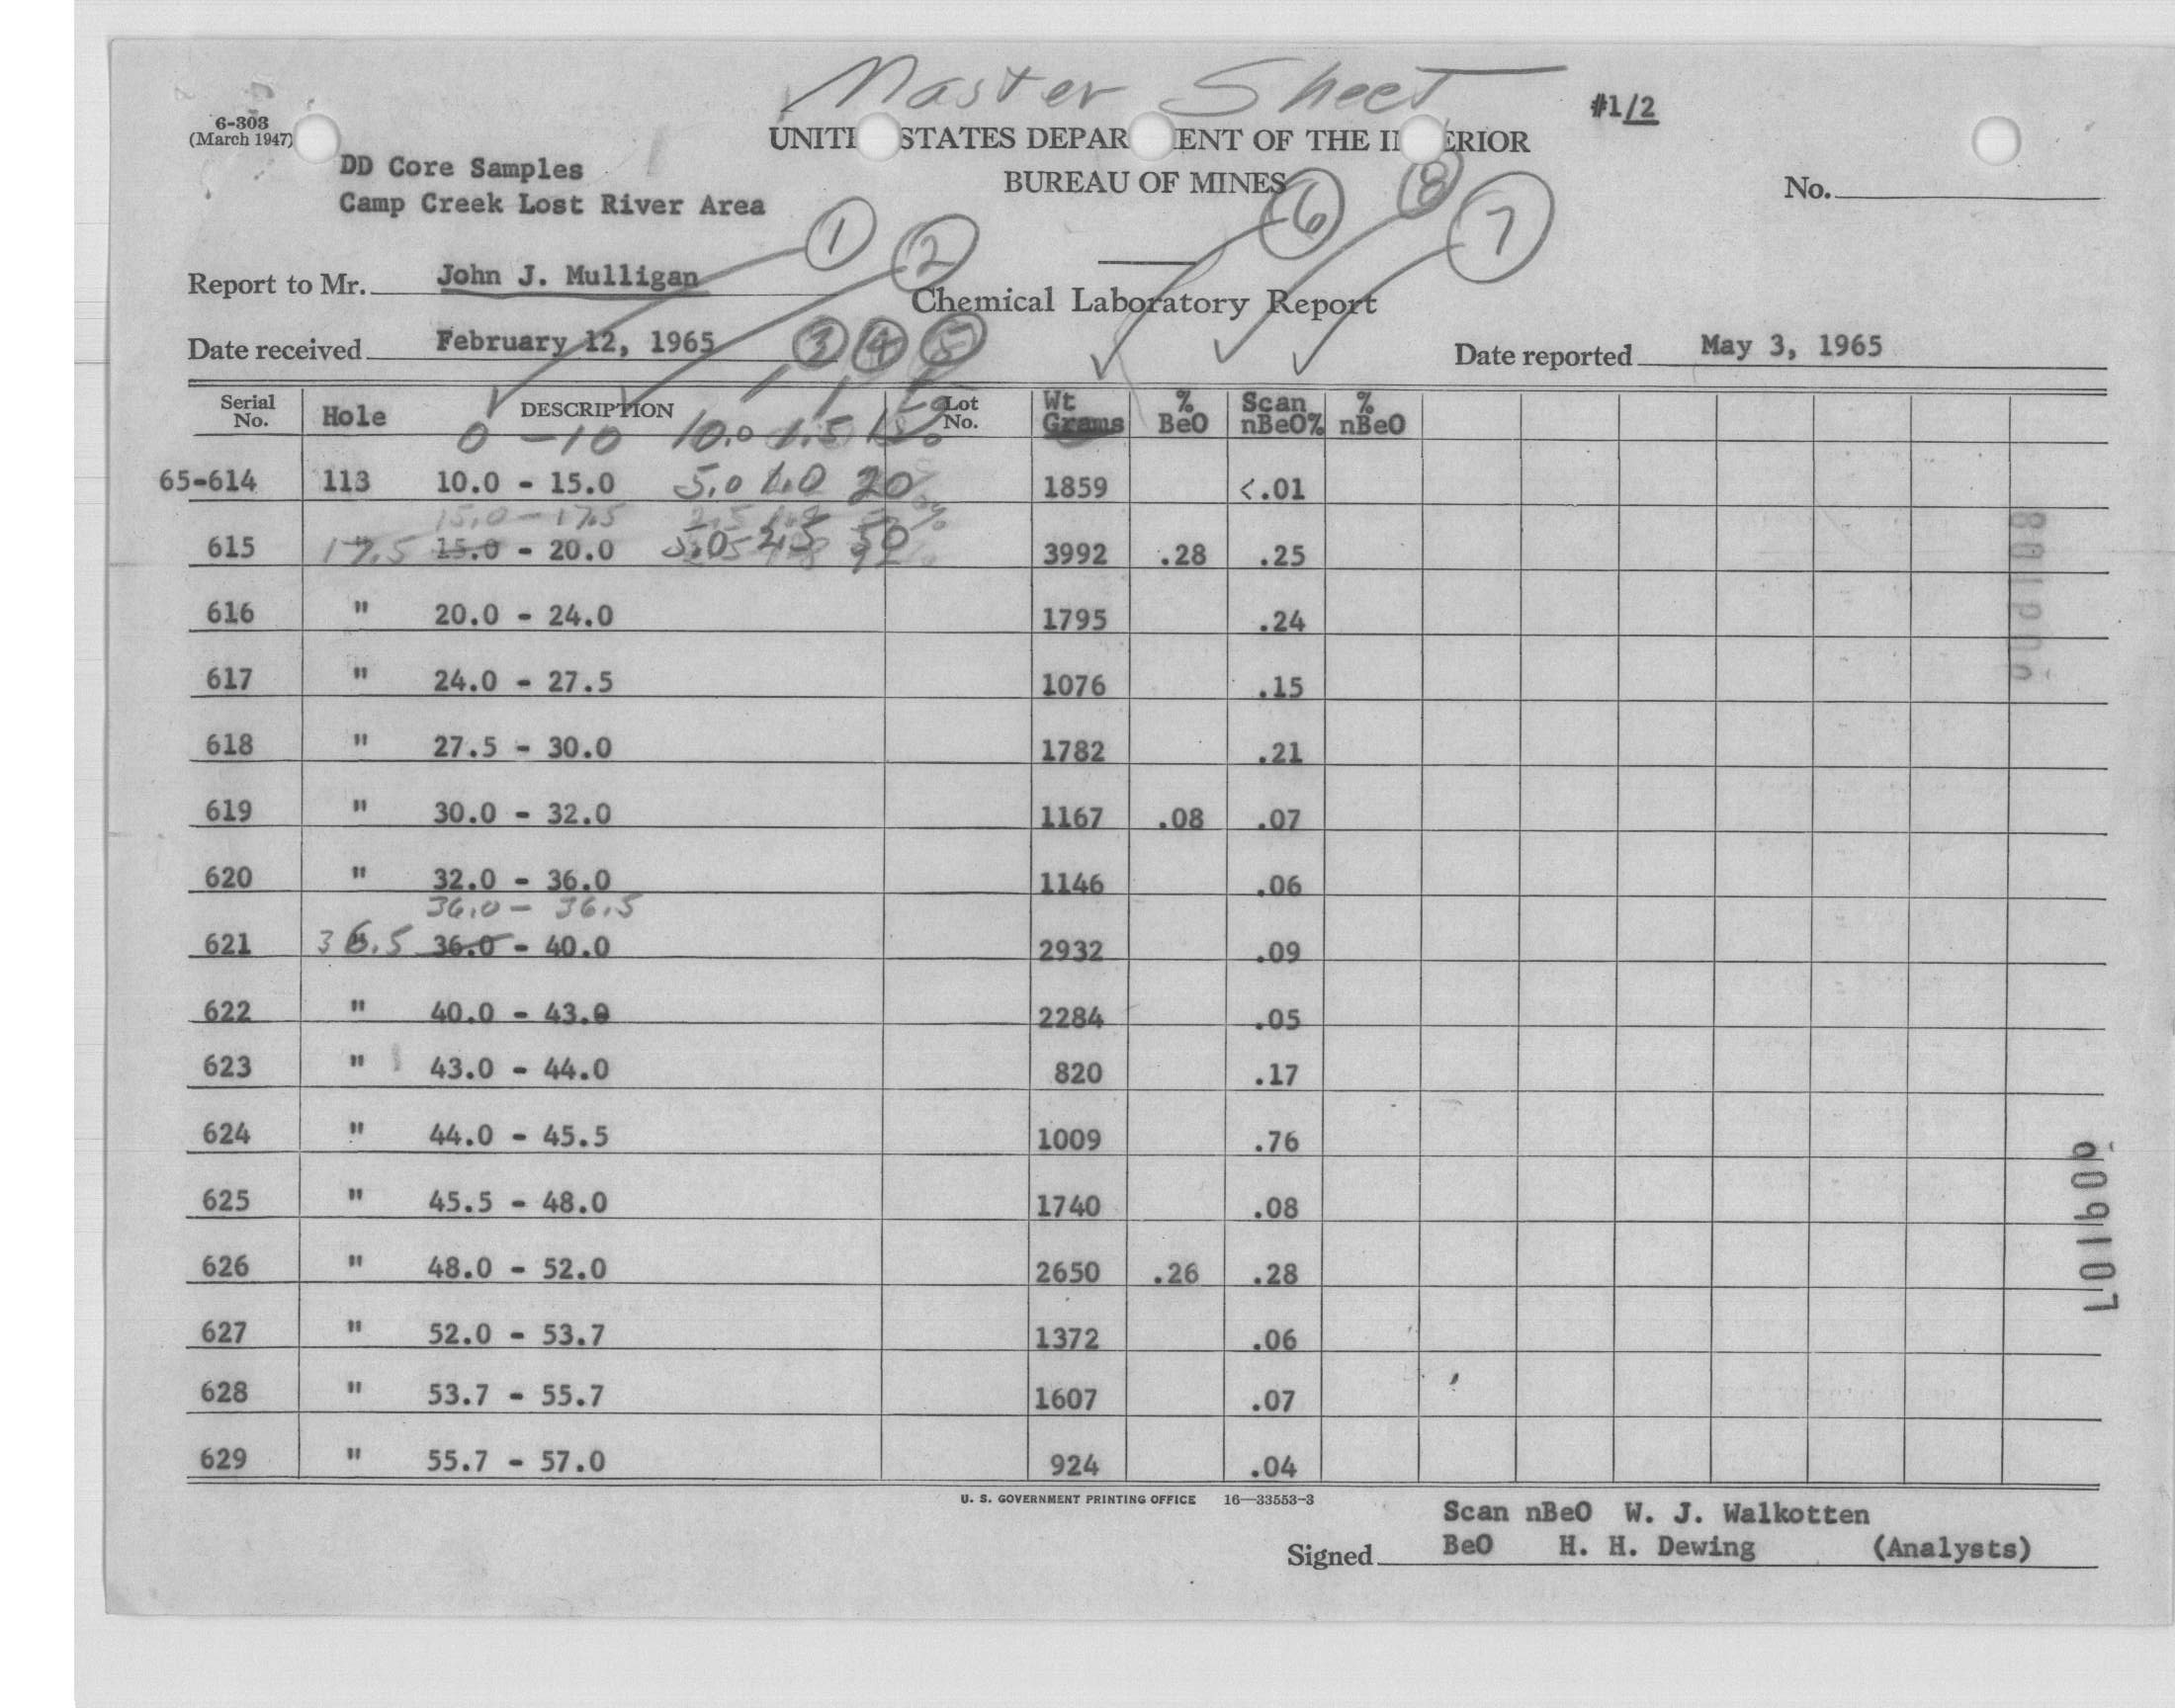 Master Sheet
#1/2
6-303
(March 1947)
UNITE STATES DEPAR ENT OF THE IN ERIOR
BUREAU OF MINES
DD Core Samples
Camp Creek Lost River Area
No.
1 2 6 8 7
Report to Mr. John J. Mulligan
Chemical Laboratory Report
Date received February 12, 1965
3 4 5
Date reported May 3, 1965
Serial No. Hole DESCRIPTION Lot No. Wt Grams % BeO Scan nBeO% % nBeO
0 - 10 10.0 1.5 15%
65-614 113 10.0 - 15.0 5.0 1.0 20 1859 <.01
15.0 - 17.5
615 17.5 15.0 - 20.0 5.0 2.5 50 3992 .28 .25
616 " 20.0 - 24.0 1795 .24
617 " 24.0 - 27.5 1076 .15
618 " 27.5 - 30.0 1782 .21
619 " 30.0 - 32.0 1167 .08 .07
620 " 32.0 - 36.0 1146 .06
36.0 - 36.5
621 36.5 36.0 - 40.0 2932 .09
622 " 40.0 - 43.0 2284 .05
623 " 43.0 - 44.0 820 .17
624 " 44.0 - 45.5 1009 .76
625 " 45.5 - 48.0 1740 .08
626 " 48.0 - 52.0 2650 .26 .28
627 " 52.0 - 53.7 1372 .06
628 " 53.7 - 55.7 1607 .07
629 " 55.7 - 57.0 924 .04
U. S. GOVERNMENT PRINTING OFFICE 16—33553-3
Scan nBeO W. J. Walkotten
Signed BeO H. H. Dewing (Analysts)